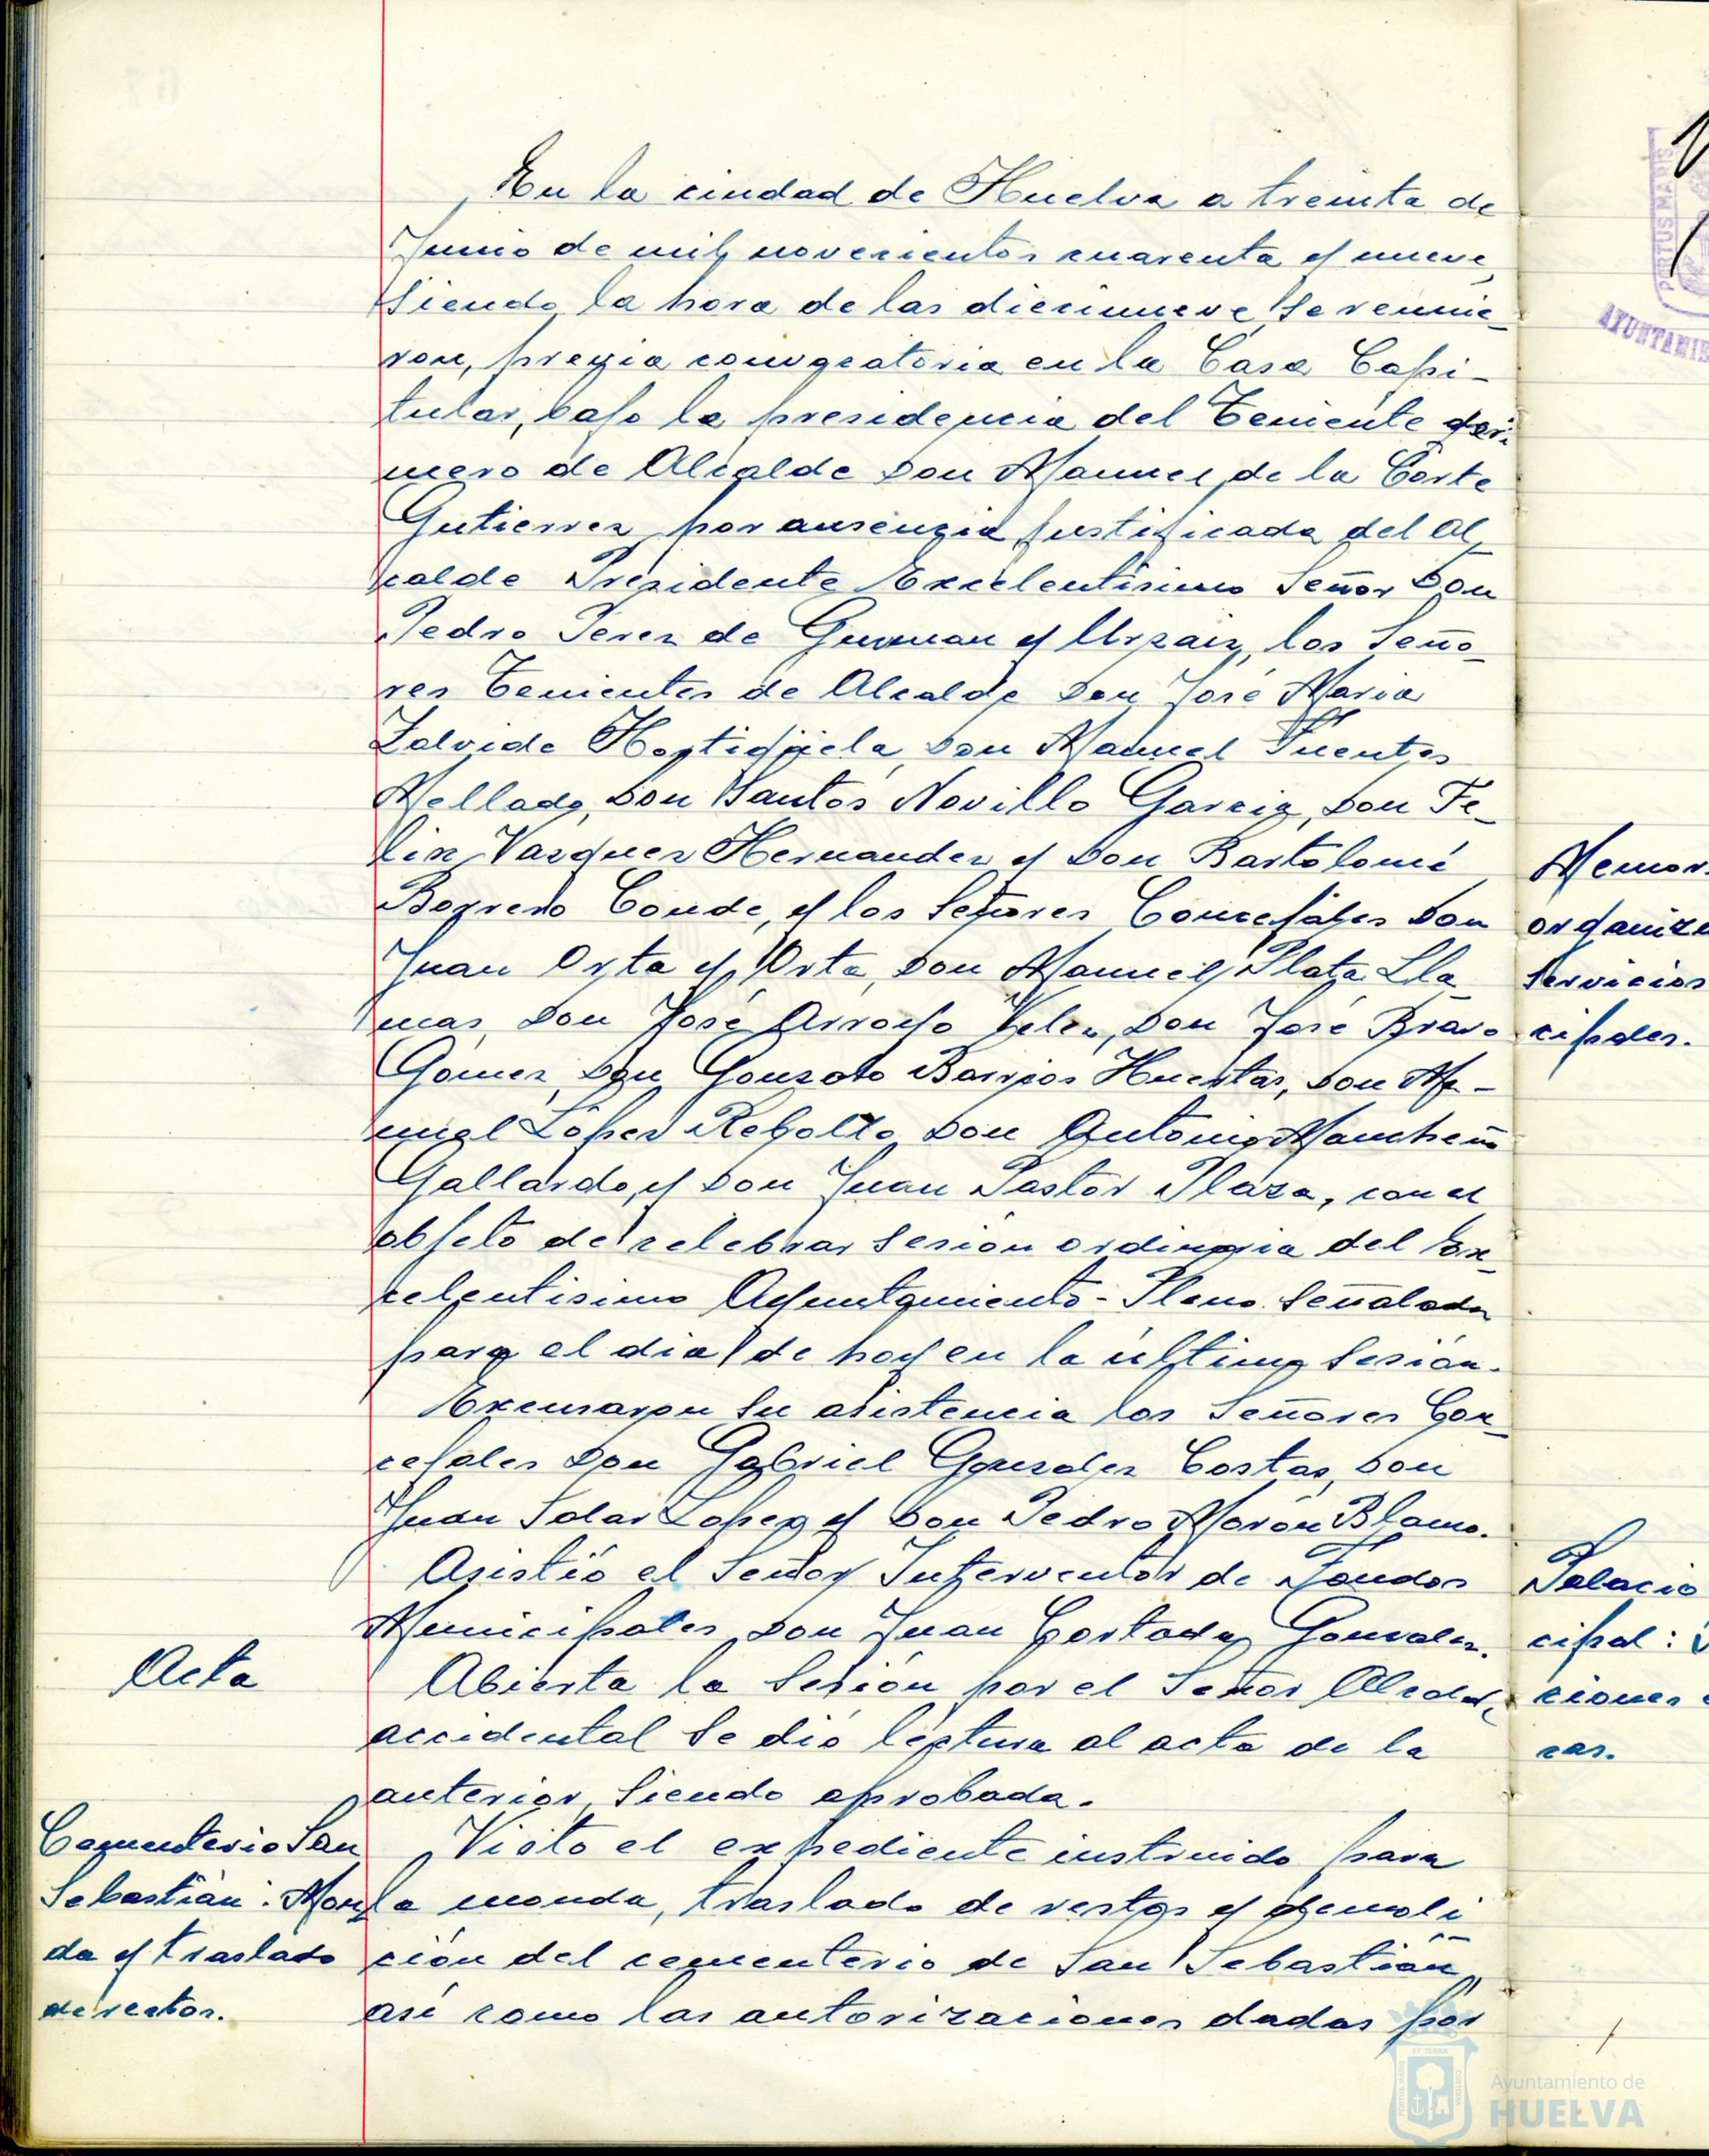 En la ciudad de Huelva a treinta de
Junio de mil novecientos cuarenta y nueve,
siendo la hora de las diecinueve se reunie-
ron, previa convocatoria en la Casa Capi-
tular, bajo la presidencia del Teniente pri-
mero de Alcalde Don Manuel de la Corte
Gutierrez por ausencia justificada del Al-
calde Presidente Excelentísimo Señor Don
Pedro Perez de Guzman y Urzaiz, los Seño-
res Tenientes de Alcalde Don José Maria
Zalvide Hortigüela, Don Manuel Fuentes
Mellado, Don Santos Novillo Garcia, Don Fe-
lix Vazquez Hernandez y Don Bartolomé
Borrero Conde, y los Señores Concejales Don
Juan Orta y Orta, Don Manuel Plata Lla-
mas, Don José Arroyo Velez, Don José Bravo
Gómez, Don Gonzalo Barrios Huertas, Don Ma-
nuel López Rebollo, Don Antonio Mancheño
Gallardo, y Don Juan Pastor Plaza, con el
objeto de celebrar sesión ordinaria del Ex-
celentisimo Ayuntamiento-Pleno señalada
para el dia de hoy en la última sesión.
Excusaron su asistencia los Señores Con-
cejales Don Gabriel Gonzalez Costas, Don
Juan Solar Lopez y Don Pedro Morón Blanco.
Asistió el Señor Interventor de Fondos
Municipales, Don Juan Cortada Gonzalez.
Acta
Abierta la sesión por el Señor Alcalde
accidental se dió lectura al acta de la
anterior, siendo aprobada.
Cementerio San
Sebastián: Mon-
da y traslado
de restos.
Visto el expediente instruido para
la monda, traslado de restos y demoli-
ción del cementerio de San Sebastián,
así como las autorizaciones dadas por
Memor
organiza
servicios
cipales.
Palacio
cipal:
ciones
cas.
PORTUS MARIS
AYUNTAMIE
Ayuntamiento de
HUELVA